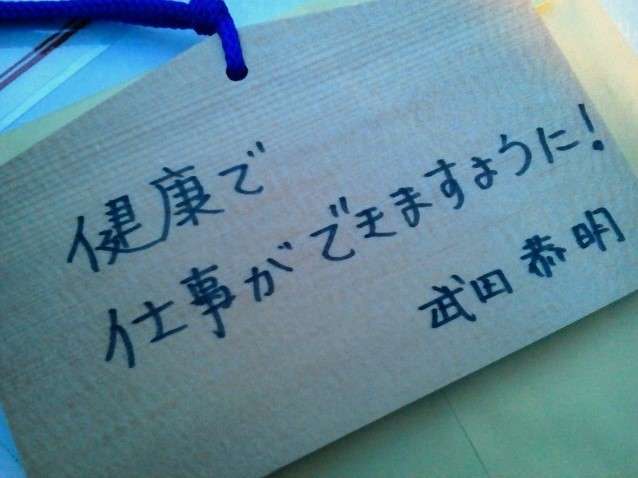 健康で
仕事ができますように!
武田恭明